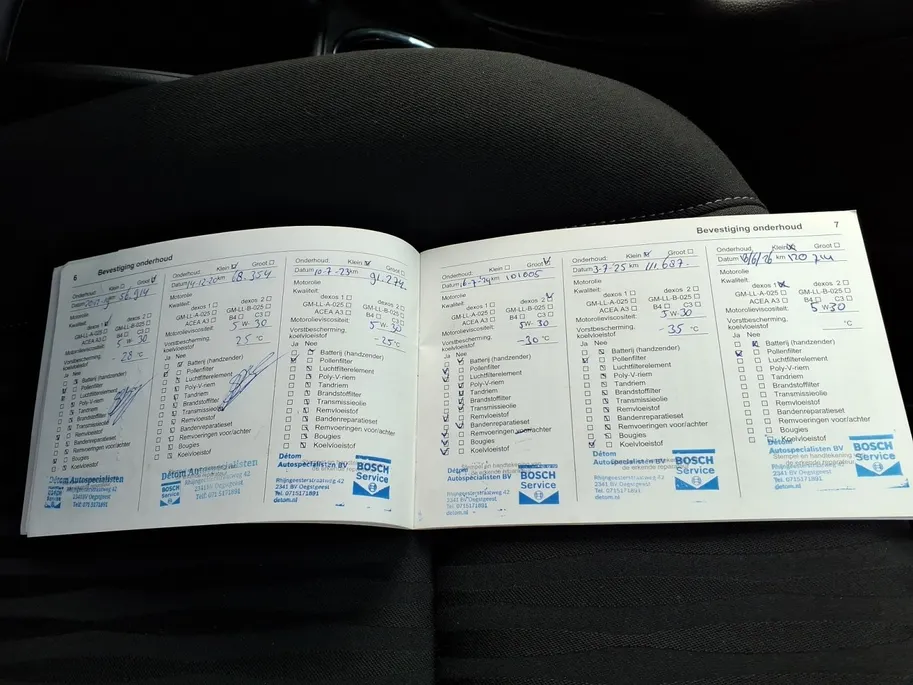 6 Bevestiging onderhoud
Onderhoud: Klein Groot
Datum km 56.914
Motorolie
Kwaliteit:
dexos 1 dexos 2
GM-LL-A-025 GM-LL-B-025
ACEA A3 B4 C3
Motorolieviscositeit: 5 W 30
Vorstbescherming,
koelvloeistof -28 °C
Ja Nee
Batterij (handzender)
Pollenfilter
Luchtfilterelement
Poly-V-riem
Tandriem
Brandstoffilter
Transmissieolie
Remvloeistof
Bandenreparatieset
Remvoeringen voor/achter
Bougies
Koelvloeistof
Détom
Autospecialisten
2341 BV Oegstgeest
Telf. 0715171891
Onderhoud: Klein Groot
Datum 14-12-20 km 68.354
Motorolie
Kwaliteit:
dexos 1 dexos 2
GM-LL-A-025 GM-LL-B-025
ACEA A3 B4 C3
Motorolieviscositeit: 5 W-30
Vorstbescherming,
koelvloeistof 25 °C
Ja Nee
Batterij (handzender)
Pollenfilter
Luchtfilterelement
Poly-V-riem
Tandriem
Brandstoffilter
Transmissieolie
Remvloeistof
Bandenreparatieset
Remvoeringen voor/achter
Bougies
Koelvloeistof
Détom Autospecialisten
2341 BV Oegstgeest
Telf. 0715171891
Onderhoud: Klein Groot
Datum 10-7-23 km 91.274
Motorolie
Kwaliteit:
dexos 1 dexos 2
GM-LL-A-025 GM-LL-B-025
ACEA A3 B4 C3
Motorolieviscositeit: 5 W-30
Vorstbescherming,
koelvloeistof -25 °C
Ja Nee
Batterij (handzender)
Pollenfilter
Luchtfilterelement
Poly-V-riem
Tandriem
Brandstoffilter
Transmissieolie
Remvloeistof
Bandenreparatieset
Remvoeringen voor/achter
Bougies
Koelvloeistof
Détom
Autospecialisten BV
Rhijngeesterstraatweg 42
2341 BV Oegstgeest
Tel. 0715171891
detom.nl
BOSCH
Service
Bevestiging onderhoud 7
Onderhoud: Klein Groot
Datum km 101005
Motorolie
Kwaliteit:
dexos 1 dexos 2
GM-LL-A-025 GM-LL-B-025
ACEA A3 B4 C3
Motorolieviscositeit: 5W-30
Vorstbescherming,
koelvloeistof -30 °C
Ja Nee
Batterij (handzender)
Pollenfilter
Luchtfilterelement
Poly-V-riem
Tandriem
Brandstoffilter
Transmissieolie
Remvloeistof
Bandenreparatieset
Remvoeringen voor/achter
Bougies
Koelvloeistof
Stempel en handtekening
Rhijngeesterstraatweg 42
2341 BV Oegstgeest
Tel. 0715171891
detom.nl
BOSCH
Service
Onderhoud: Klein Groot
Datum 3-7-25 km 111.687.
Motorolie
Kwaliteit:
dexos 1 dexos 2
GM-LL-A-025 GM-LL-B-025
ACEA A3 B4 C3
Motorolieviscositeit: 5 W-30
Vorstbescherming,
koelvloeistof -35 °C
Ja Nee
Batterij (handzender)
Pollenfilter
Luchtfilterelement
Poly-V-riem
Tandriem
Brandstoffilter
Transmissieolie
Remvloeistof
Bandenreparatieset
Remvoeringen voor/achter
Bougies
Koelvloeistof
Détom
Autospecialisten BV
Rhijngeesterstraatweg 42
2341 BV Oegstgeest
Tel. 0715171891
detom.nl
BOSCH
Service
Onderhoud: Klein Groot
Datum km
Motorolie
Kwaliteit:
dexos 1 dexos 2
GM-LL-A-025 GM-LL-B-025
ACEA A3 B4 C3
Motorolieviscositeit: 5 W 30
Vorstbescherming,
koelvloeistof °C
Ja Nee
Batterij (handzender)
Pollenfilter
Luchtfilterelement
Poly-V-riem
Tandriem
Brandstoffilter
Transmissieolie
Remvloeistof
Bandenreparatieset
Remvoeringen voor/achter
Bougies
Koelvloeistof
Détom
Stempel en handtekening
Autospecialisten BV
Rhijngeesterstraatweg 42
2341 BV Oegstgeest
Tel. 0715171891
detom.nl
BOSCH
Service